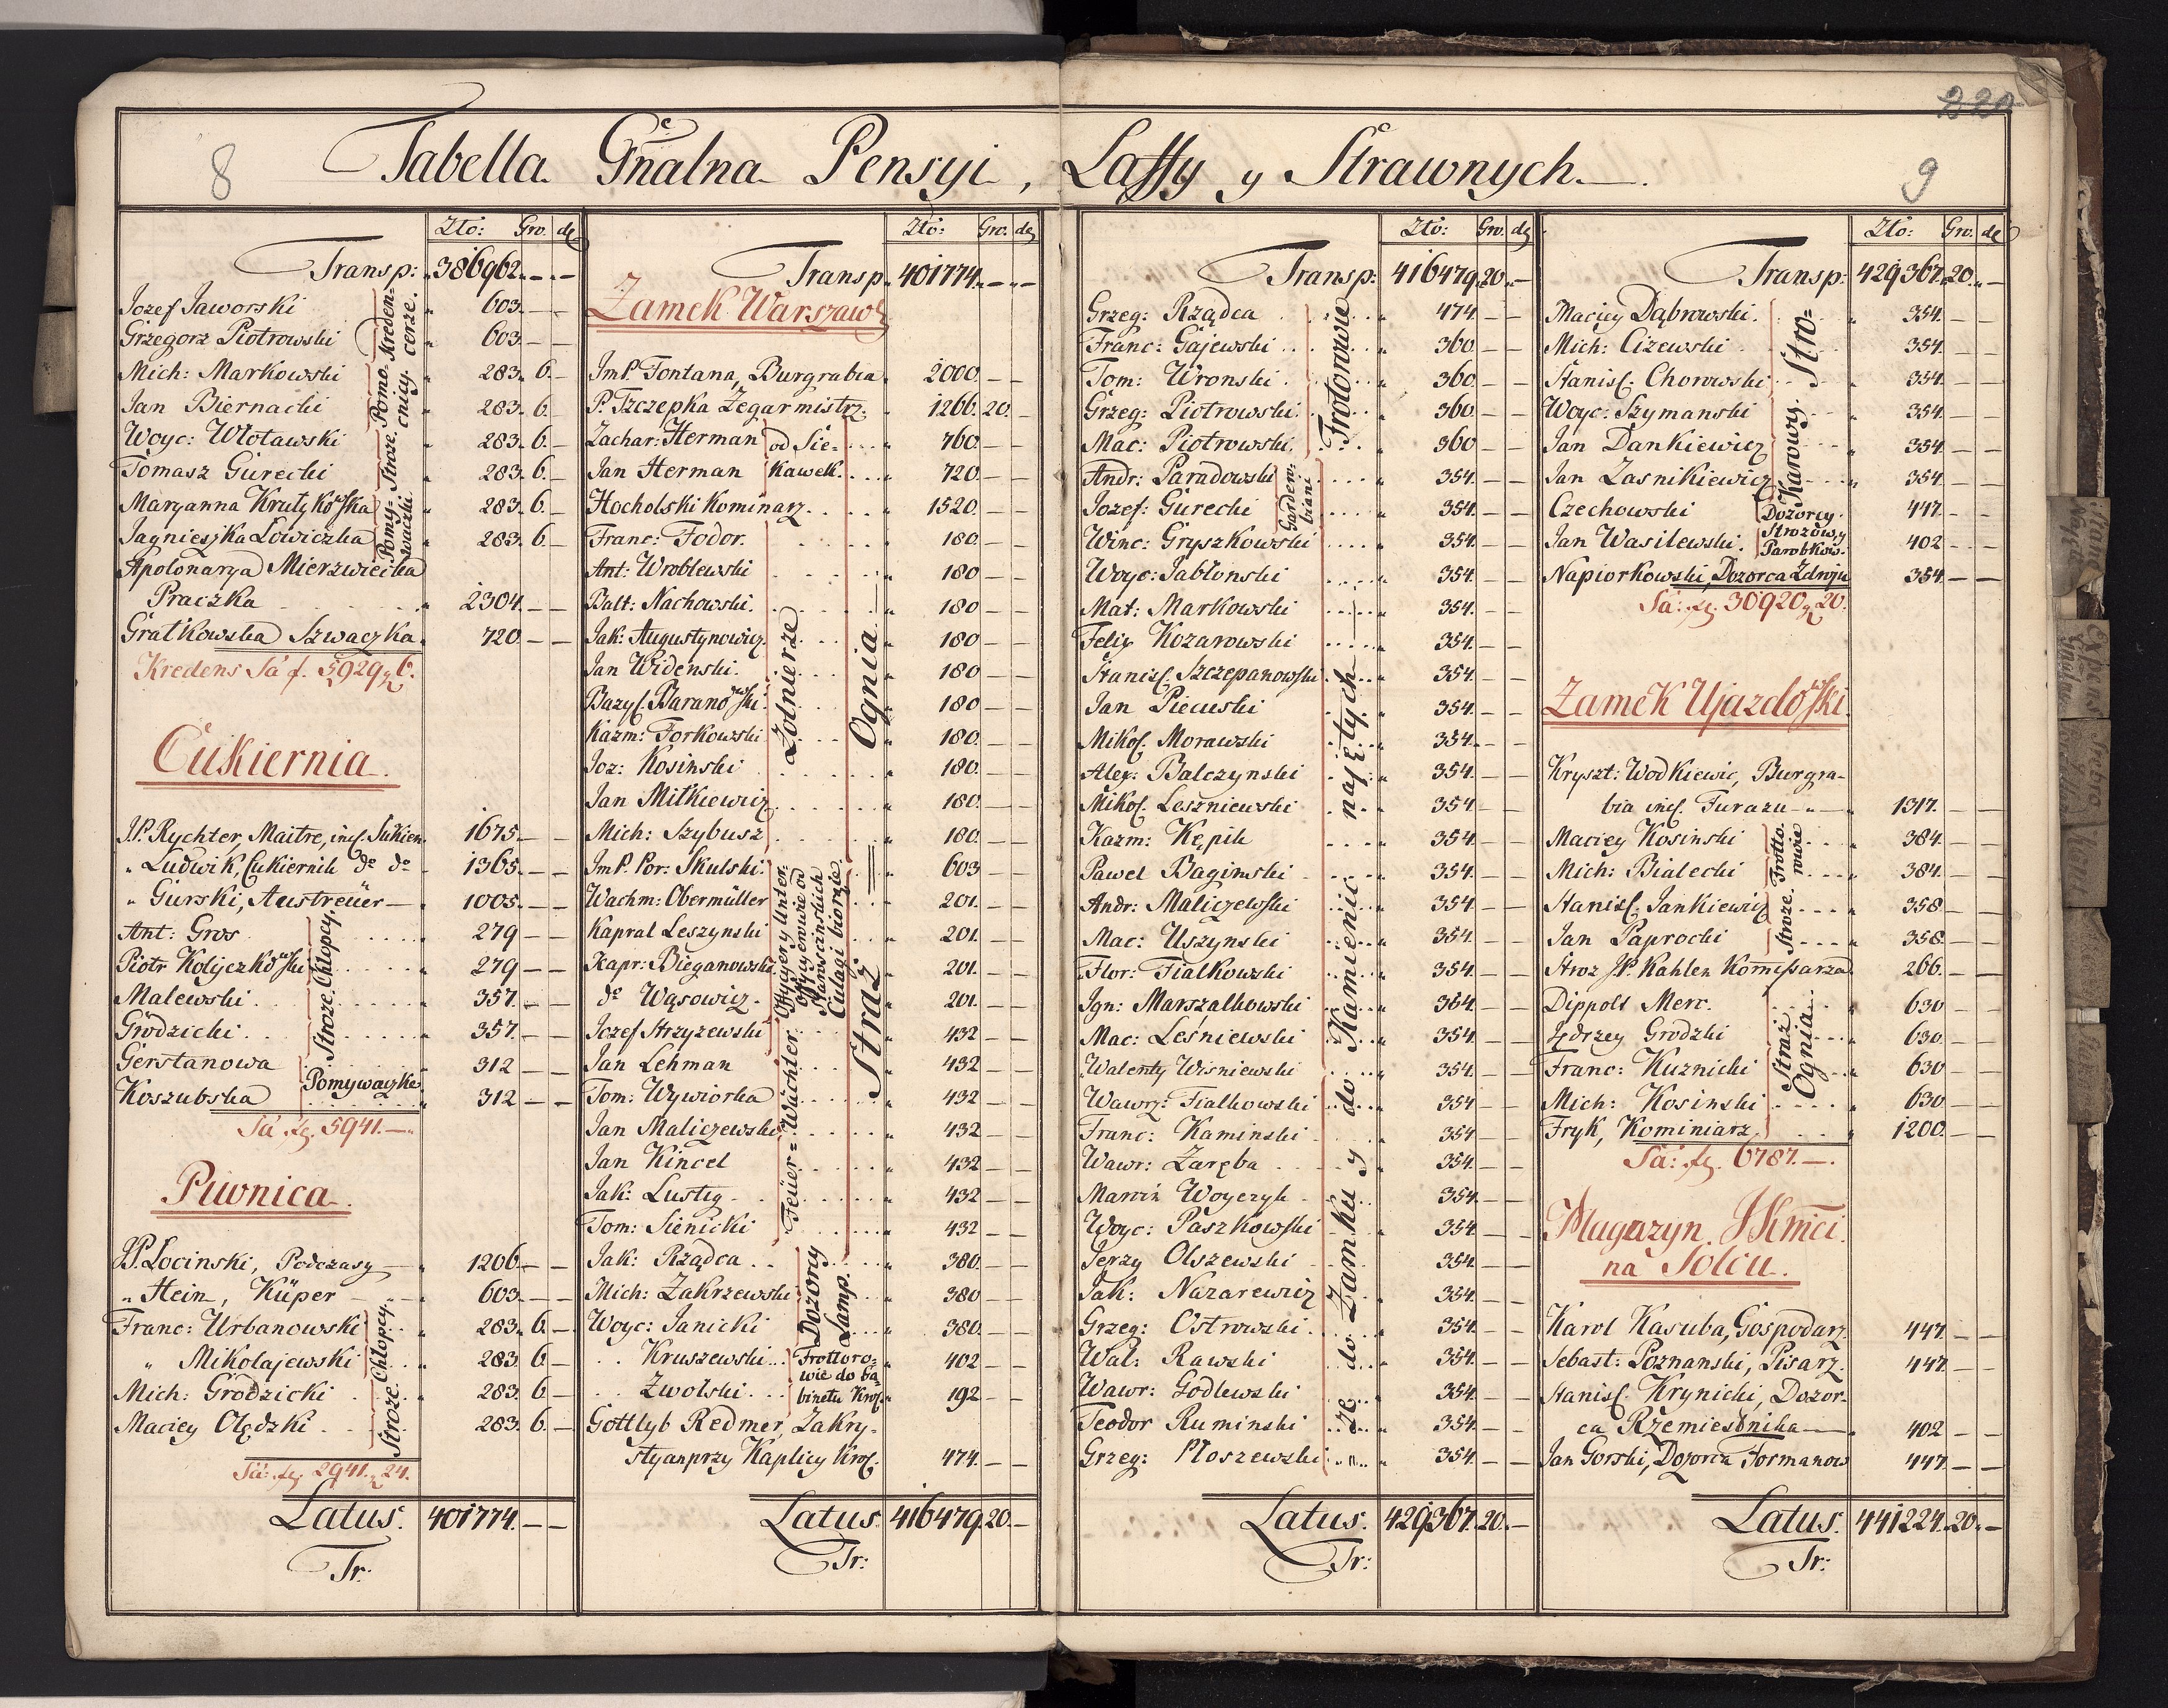 8
Tabella Gnalna Pensyi, Laffy y Strawnych.
9
Zło: Gro. de
Transp: 386962. — —
Jozef Jaworski 603. — —
Grzegorz Piotrowski 603. — —
Kredencerze.
Mich: Markowski 283. 6. —
Jan Biernacki 283. 6. —
Pomocnicy.
Woyc: Włotawski 283. 6. —
Tomasz Gurecki 283. 6. —
Stroze.
Maryanna Krutykowska 283. 6. —
Jagnieszka Lowiczka 283. 6. —
Pomywaczki.
Apolonarya Mierzwicka
Praczka 2304. — —
Gratkowska Szwaczka. 720 — —
Kredens Sa f. 5929 g 6.
Cukiernia.
JP. Rychter, Maitre, incl. Sukien. 1675. — —
" Ludwik, Cukiernik do do 1365. — —
" Gurski, Austreüer — 1005. — —
Ant: Gros 279 — —
Piotr Kolyczkowski 279 — —
Chłopcy.
Malewski 357. — —
Grodzicki 357. — —
Stroze.
Gerstanowa 312 — —
Koszubska 312 — —
Pomywaczki
Sa fg. 5941. —
Piwnica.
JP. Locinski, Podczaszy 1206. — —
" Hein, Küper 603. — —
Franc: Urbanowski 283. 6. —
" Mikolajewski 283. 6 —
Chłopcy.
Mich: Grodzicki 283. 6 —
Maciey Olędzki 283. 6. —
Stroze.
Sa: fg. 2941. 24.
Latus. 401774. — —
Tr:
Zło: Gro. de
Transp. 401774. — —
Zamek Warszaws
JmP. Fontana, Burgrabia. 2000. — —
P. Szczepka Zegarmistrz. 1266. 20. —
Zachar: Herman 760 — —
Jan Herman 720. — —
od Sie=
kawek.
Hocholski Kominarz. 1520. — —
Franc: Fodor. 180. — —
Ant: Wroblewski 180 — —
Balt: Nachowski. 180 — —
Jak: Augustynowicz. 180 — —
Jan Widenski. 180 — —
Bazyl. Baranowski. 180 — —
Kazm: Forkowski 180. — —
Joz: Kosinski 180. — —
Jan Mitkiewicz 180. — —
Mich: Szybusz 180. — —
Zołnierze
JmP. Por: Skulski: 603 — —
Wachm: Obermüller 201. — —
Kapral Leszynski 201. — —
Kapr: Bieganowski 201. — —
do Wąsowicz. 201. — —
Jozef Strzyzewski 432 — —
Jan Lehman 432 — —
Tom: Wywiorka 432 — —
Jan Maliczewski 432 — —
Jan Kincel 432 — —
Jak: Lustig 432 — —
Tom: Sienicki 432 — —
Feüer=Wächter.
Straż Ognia
Jak: Rządca 380. — —
Mich: Zakrzewski 380 — —
Woyc: Janicki 380. — —
Dozorcy
Lamp.
Kruszewski 402 — —
Zwolski 192 — —
Frottoro=
wie do ga=
binetu Krol.
Gottlyb Redmer, Zakry-
styan przy Kaplicy Krol. 474. — —
Latus. 416479. 20. —
Tr:
Zło: Gro. de
Transp: 416479. 20. —
Grzeg: Rządca 474. — —
Franc: Gajewski 360. — —
Tom: Wronski 360. — —
Grzeg: Piotrowski. 360. — —
Mac: Piotrowski. 360 — —
Frotorowie
Andr: Paradowski 354. — —
Jozef: Gurecki 354. — —
Garderobiani
Winc: Gryszkowski 354. — —
Woyc: Jabłonski 354. — —
Mat: Markowski 354. — —
Felix Kozarowski 354. — —
Stanisl. Szczepanowski 354. — —
Jan Piecuski 354. — —
Mikol. Morawski 354. — —
Alex: Balczynski 354. — —
Mikol. Leszniewski 354 — —
Kazm: Kępik 354. — —
Pawel Bagimski 354. — —
Andr: Maliczewski 354. — —
Mac: Uszynski 354. — —
Flor: Fialkowski 354. — —
Ign: Marszalkowski 364. — —
Mac: Lesniewski 354. — —
Walenty Wisniewski 354. — —
Wawrz: Fialkowski 354 — —
Franc: Kaminski 354 — —
Wawr: Zaręba 354. — —
Marcin Woyczyk 354. — —
Woyc: Paszkowski 354. — —
Jerzy Olszewski 354. — —
Jak: Nazarewicz 354. — —
Grzeg: Ostrowski 354. — —
Wal: Rawski 354. — —
Wawr: Godlewski 354. — —
Teodor Ruminski 354. — —
Grzeg: Płoszewski 354. — —
do Zamku y do Kamienic najętych
Latus. 429367. 20. —
Tr:
Zło: Gro. de
Transp: 429367. 20. —
Maciey Dąbrowski. 354. — —
Mich: Cizewski 354. — —
Stanisl. Chorowski 354. — —
Woyc: Szymanski 354. — —
Jan Dankiewicz 354. — —
Jan Zasnikiewicz 354. — —
Stro=
Karowży.
Czechowski 447. — —
Jan Wasilewski. 402 — —
Dozorcy.
Strozow y
Parobkow.
Napiorkowski, Dozorca Zdroju 354. — —
Sa: fg. 30920 g 20.
Zamek Ujazdowski.
Kryszt: Wodkiewic, Burgra-
bia incl. Furazu 1317. — —
Maciey Kosinski 384. — —
Mich: Bialecki 384. — —
Frotto.
rowie
Stanisl. Jankiewicz 358 — —
Jan Paprocki 358. — —
Stroze.
Stroz JP. Kahlen Komissarza 266. — —
Dippolt Merc. 630 — —
Jędrzey Grodzki 630. — —
Franc: Kuznicki 630 — —
Mich: Kosinski 630 — —
Straż
Ognia.
Fryk, Kominiarz. 1200. — —
Sa: fg. 6787. —.
Magazyn JKmci.
na Solcu.
Karol Kasuba, Gospodarz. 447. — —
Sebast: Poznanski, Pisarz. 447. — —
Stanisl. Krynicki, Dozor-
ca Rzemiesbnika 402 — —
Jan Gorski, Dozorca Formanow 447. — —
Latus. 441224. 20. —
Tr: